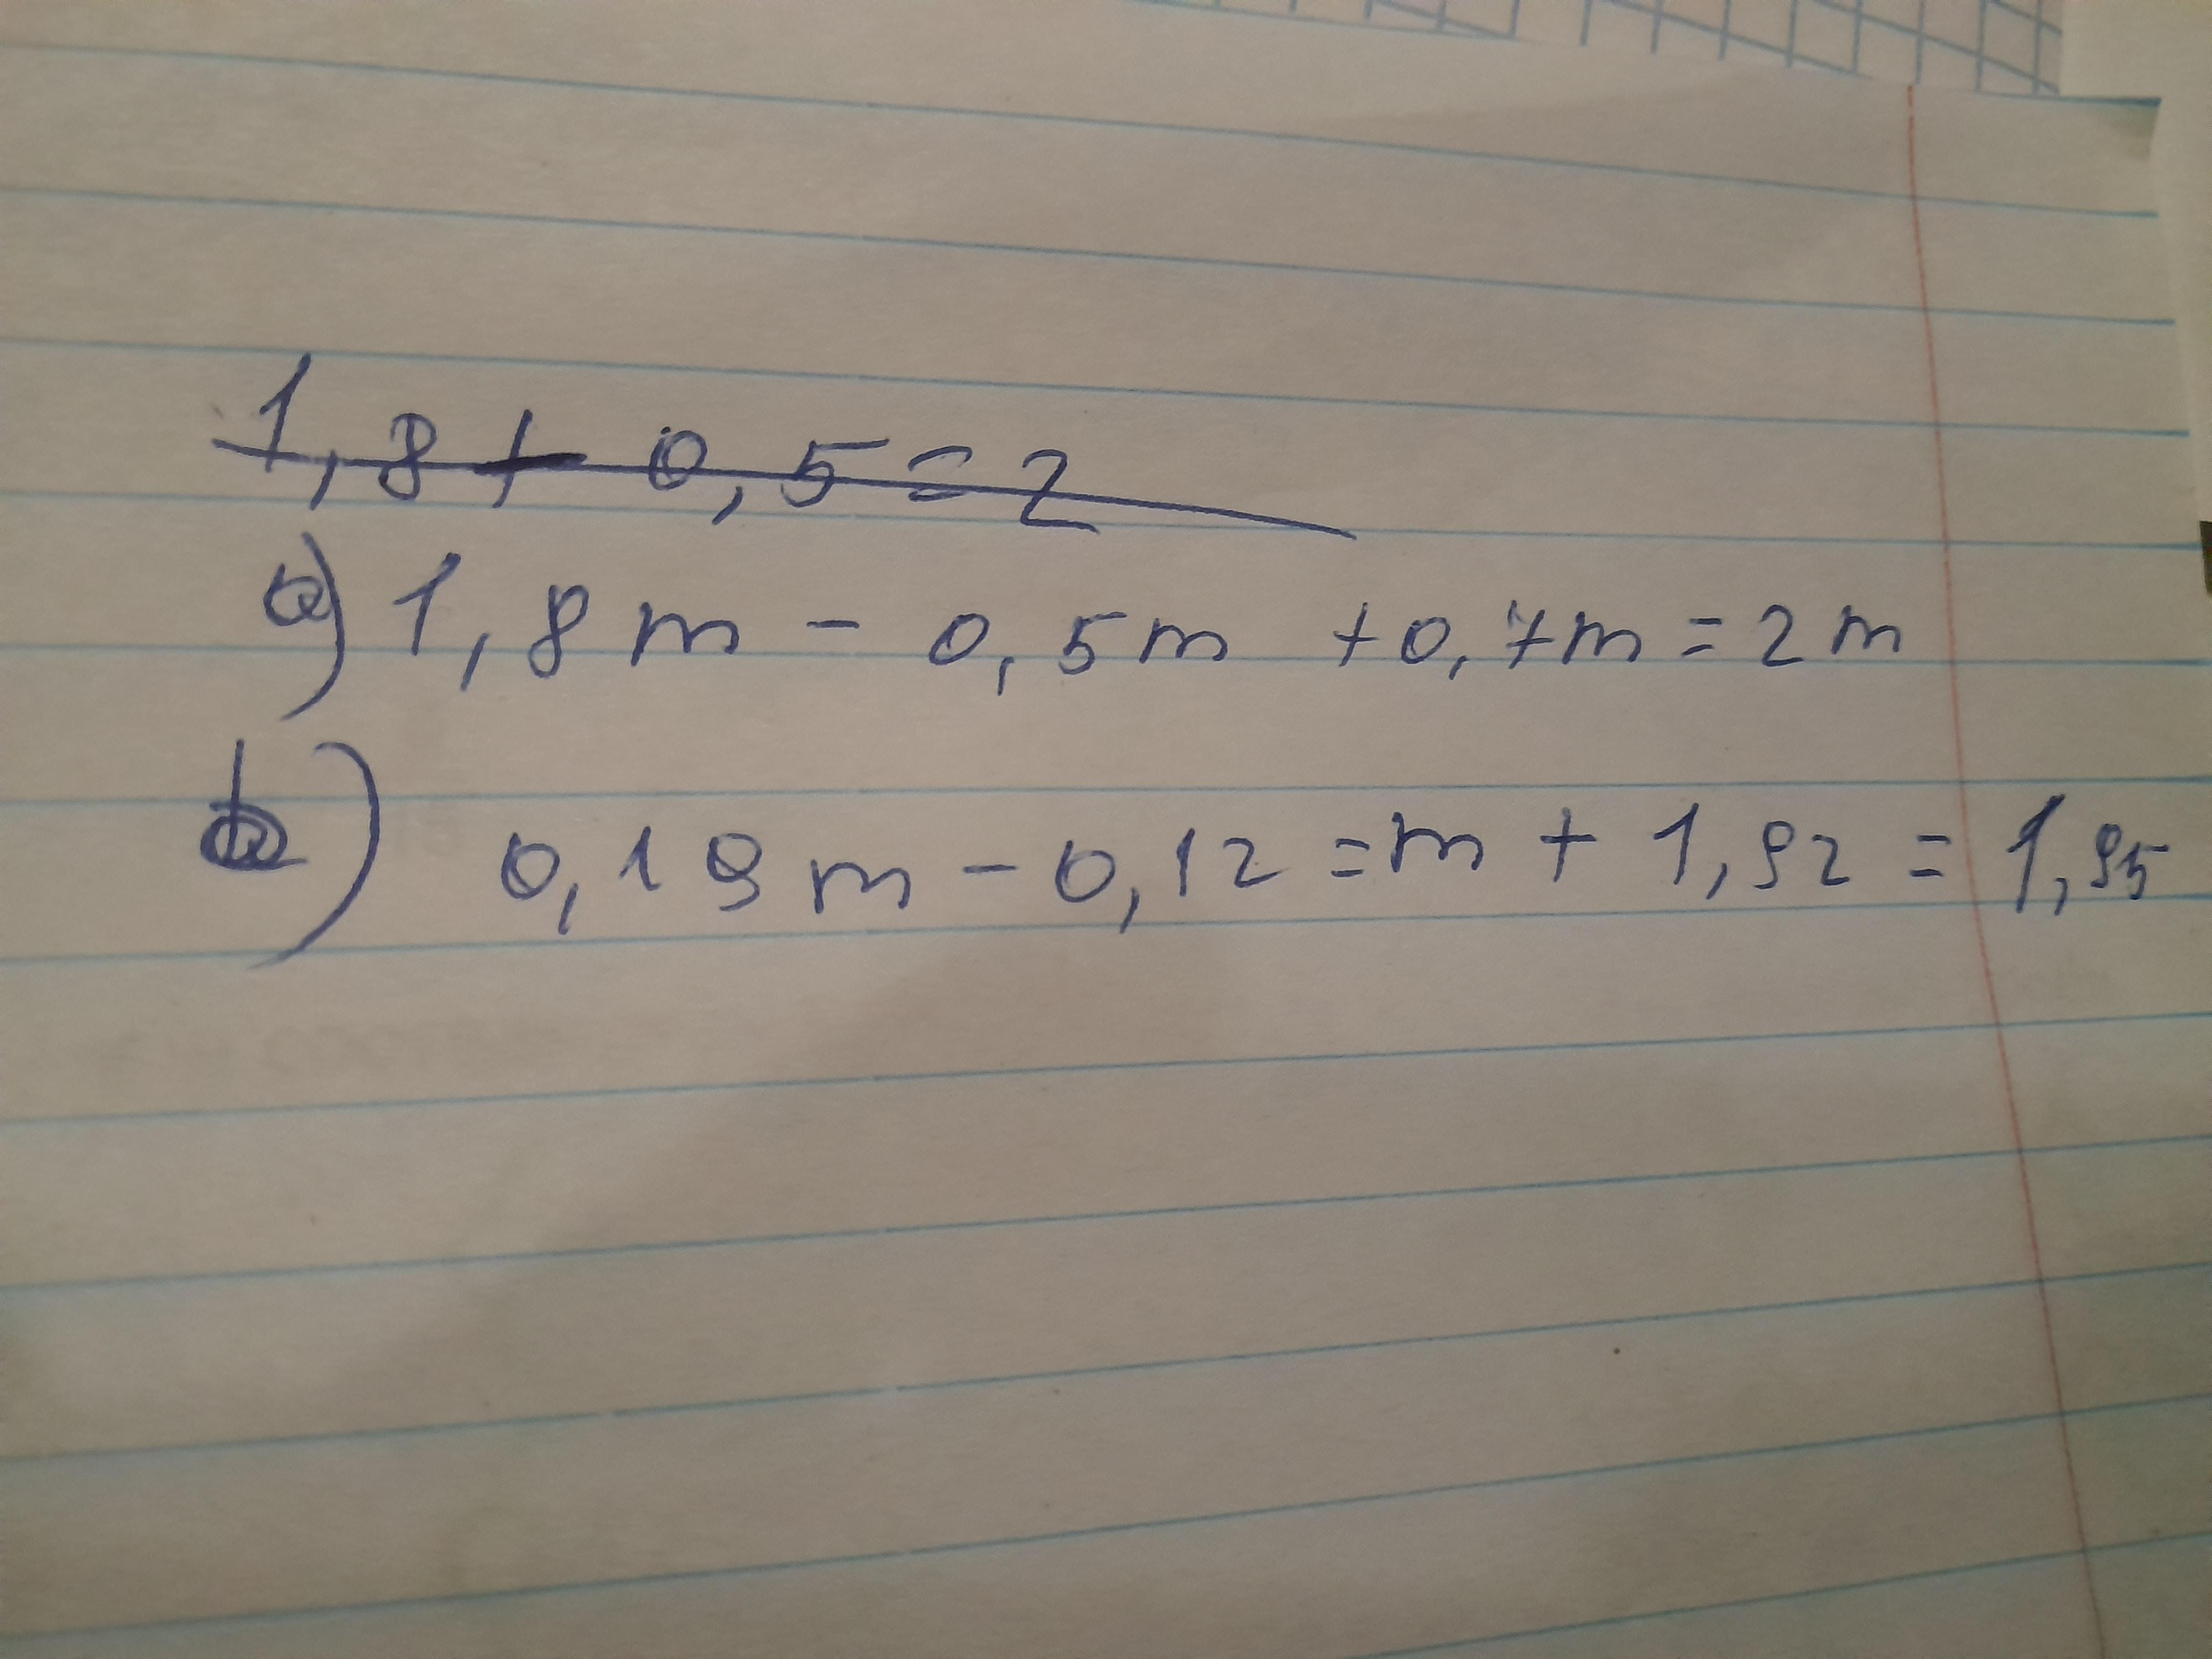 1,8 + 0,5 = 2
a) 1,8 m - 0,5 m + 0,7 m = 2 m
b) 0,19 m - 0,12 = m + 1,92 = 1,95